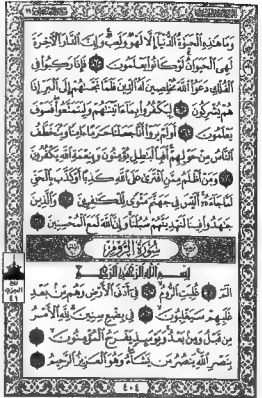 وما هذه الحيوة الدنيا إلا لهو ولعب وإن الدار الأخرة
لهى الحيوان لو كانوا يعلمون ٦٤ فإذا ركبوا فى
الفلك دعوا الله مخلصين له الدين فلما نجىهم إلى البر إذا
هم يشركون ٦٥ ليكفروا بما ءاتينهم وليتمتعوا فسوف
يعلمون ٦٦ أولم يروا أنا جعلنا حرما ءامنا ويتخطف
الناس من حولهم أفبالبطل يؤمنون وبنعمة الله يكفرون
٦٧ ومن أظلم ممن افترى على الله كذبا أو كذب بالحق
لما جاءه أليس فى جهنم مثوى للكفرين ٦٨ والذين
جهدوا فينا لنهدينهم سبلنا وإن الله لمع المحسنين ٦٩
سورة الروم
بسم الله الرحمن الرحيم
الم ١ غلبت الروم ٢ فى أدنى الأرض وهم من بعد
غلبهم سيغلبون ٣ فى بضع سنين لله الأمر
من قبل ومن بعد ويومئذ يفرح المؤمنون ٤
بنصر الله ينصر من يشاء وهو العزيز الرحيم ٥
ربع
الحزب
٤١
٤٠٤